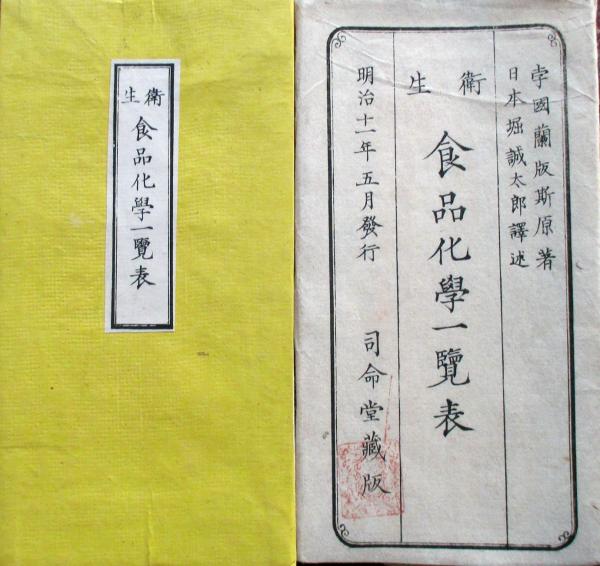 衛生
食品化學一覽表
孛國蘭版斯原著
日本堀誠太郎譯述
衛生
食品化學一覽表
明治十一年五月發行
司命堂藏版